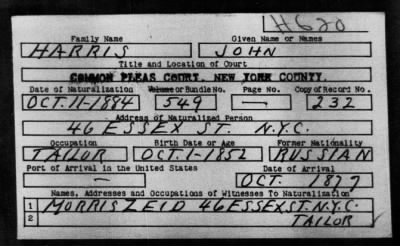 H620
Family Name Given Name or Names
HARRIS JOHN
Title and Location of Court
COMMON PLEAS COURT, NEW YORK COUNTY.
Date of Naturalization Volume or Bundle No. Page No. Copy of Record No.
OCT. 11-1884 549 — 232
Address of Naturalized Person
46 ESSEX ST. N.Y.C.
Occupation Birth Date or Age Former Nationality
TAILOR OCT. 1-1852 RUSSIAN
Port of Arrival in the United States Date of Arrival
— OCT. 1877
Names, Addresses and Occupations of Witnesses To Naturalization
1 MORRIS ZEID 46 ESSEX ST. N.Y.C.
2 TAILOR